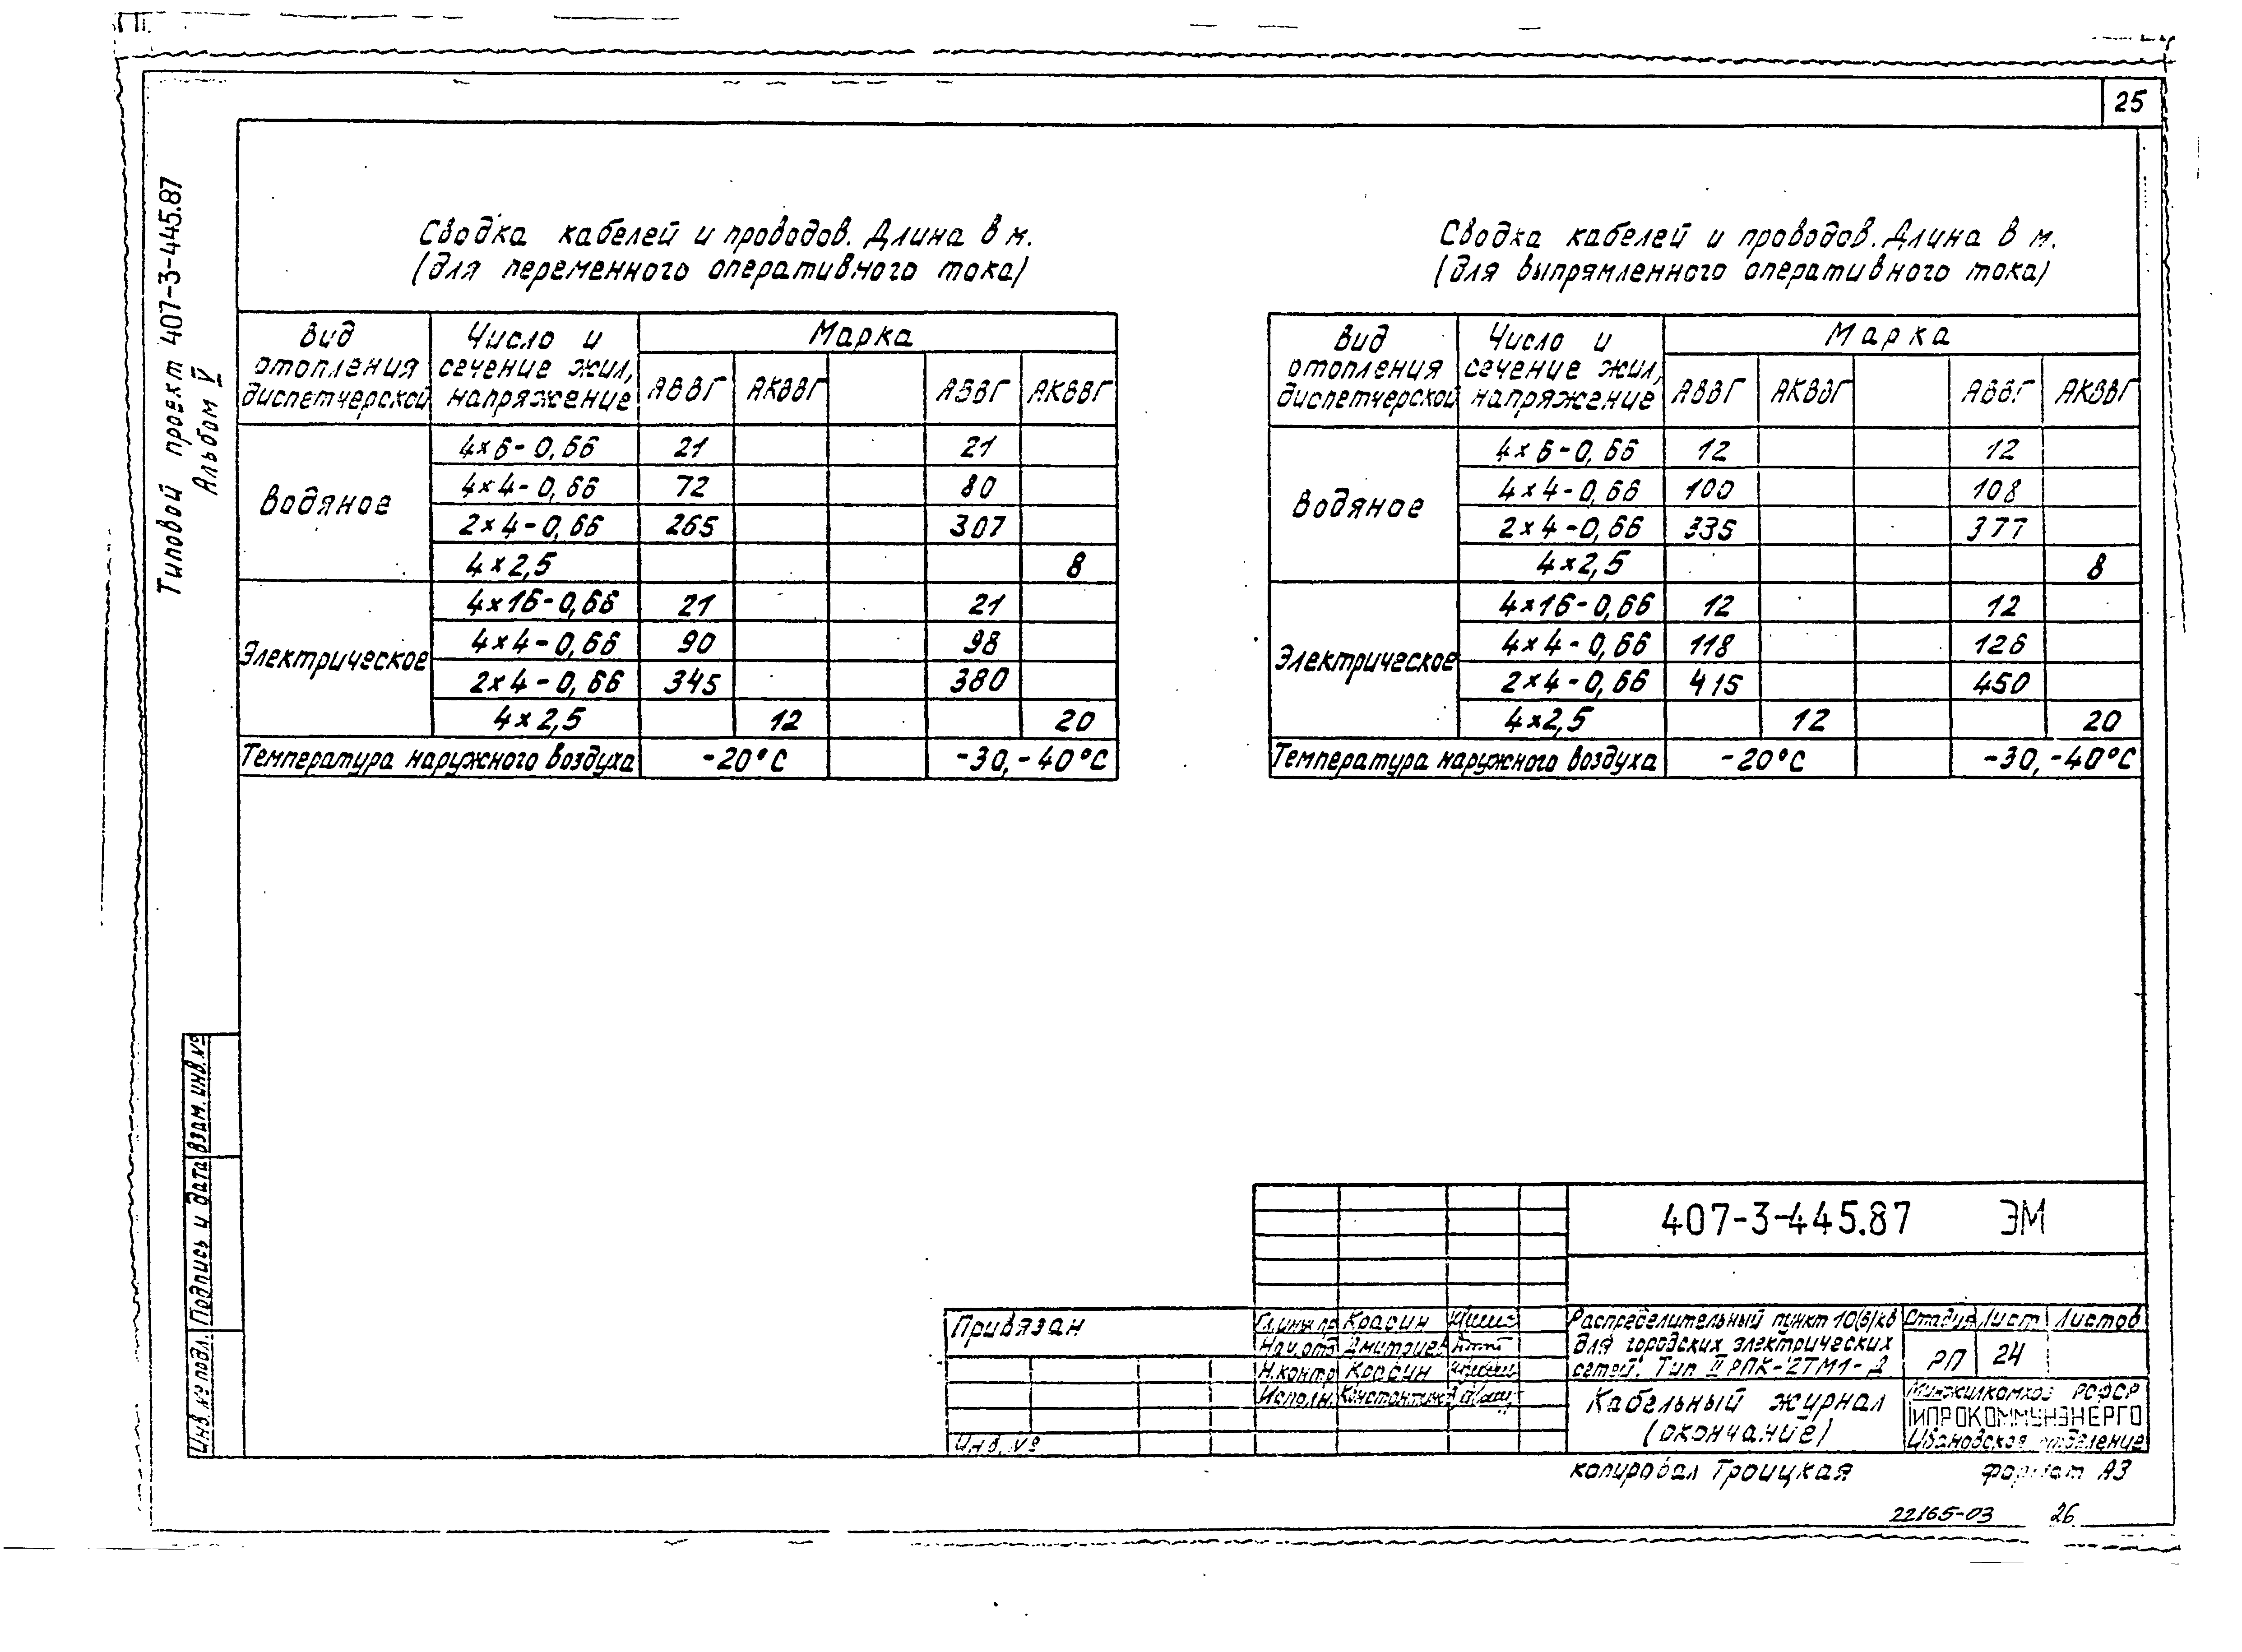 25
Типовой проект 407-3-445.87
Альбом V
Сводка кабелей и проводов. Длина в м.
(для переменного оперативного тока)
Вид отопления диспетчерской | Число и сечение жил, напряжение | Марка
АВВГ | АКВВГ | | АВВГ | АКВВГ
Водяное
4×6-0,66 | 21 | | | 21 |
4×4-0,66 | 72 | | | 80 |
2×4-0,66 | 265 | | | 307 |
4×2,5 | | | | | 8
Электрическое
4×16-0,66 | 21 | | | 21 |
4×4-0,66 | 90 | | | 98 |
2×4-0,66 | 345 | | | 380 |
4×2,5 | | 12 | | | 20
Температура наружного воздуха | -20°С | | -30,-40°С
Сводка кабелей и проводов. Длина в м.
(для выпрямленного оперативного тока)
Вид отопления диспетчерской | Число и сечение жил, напряжение | Марка
АВВГ | АКВВГ | | АВВГ | АКВВГ
Водяное
4×6-0,66 | 12 | | | 12 |
4×4-0,66 | 100 | | | 108 |
2×4-0,66 | 335 | | | 377 |
4×2,5 | | | | | 8
Электрическое
4×16-0,66 | 12 | | | 12 |
4×4-0,66 | 118 | | | 126 |
2×4-0,66 | 415 | | | 450 |
4×2,5 | | 12 | | | 20
Температура наружного воздуха | -20°С | | -30,-40°С
Инв. № подл. | Подпись и дата | Взам. инв. №
407-3-445.87 ЭМ
Привязан
Инв. №
Гл.инж.пр Красин
Нач.отд Дмитриев
Н.контр Красин
Исполн.
Распределительный пункт 10(6)кв
для городских электрических
сетей. Тип II РПК-2ТМ1-Д
Стадия | Лист | Листов
РП | 24
Кабельный журнал
(окончание)
Минжилкомхоз РСФСР
ГИПРОКОММУНЭНЕРГО
Ивановское отделение
Копировал Троицкая
формат А3
22165-03 26